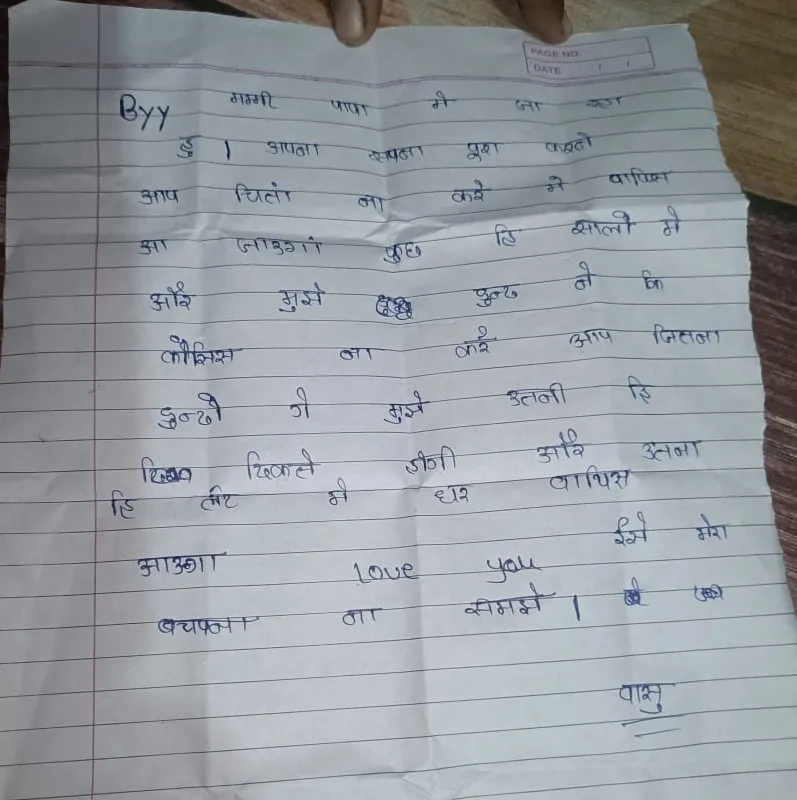 PAGE NO.
DATE / /
Byy मम्मी पापा मे जा रहा
हु । अपना सपना पुरा करने
आप चितां ना करे मे वापिस
आ जाउगां कुछ हि सालो मे
और मुझे ढुन्ढ ने कि
कोसिस ना करे आप जितना
ढुन्ढो गे मुझे उतनी हि
दिकते होगी और उतना
हि लेट मे घर वापिस
आउगा Love you ईसे मेरा
बचपना ना समझे ।
वासु